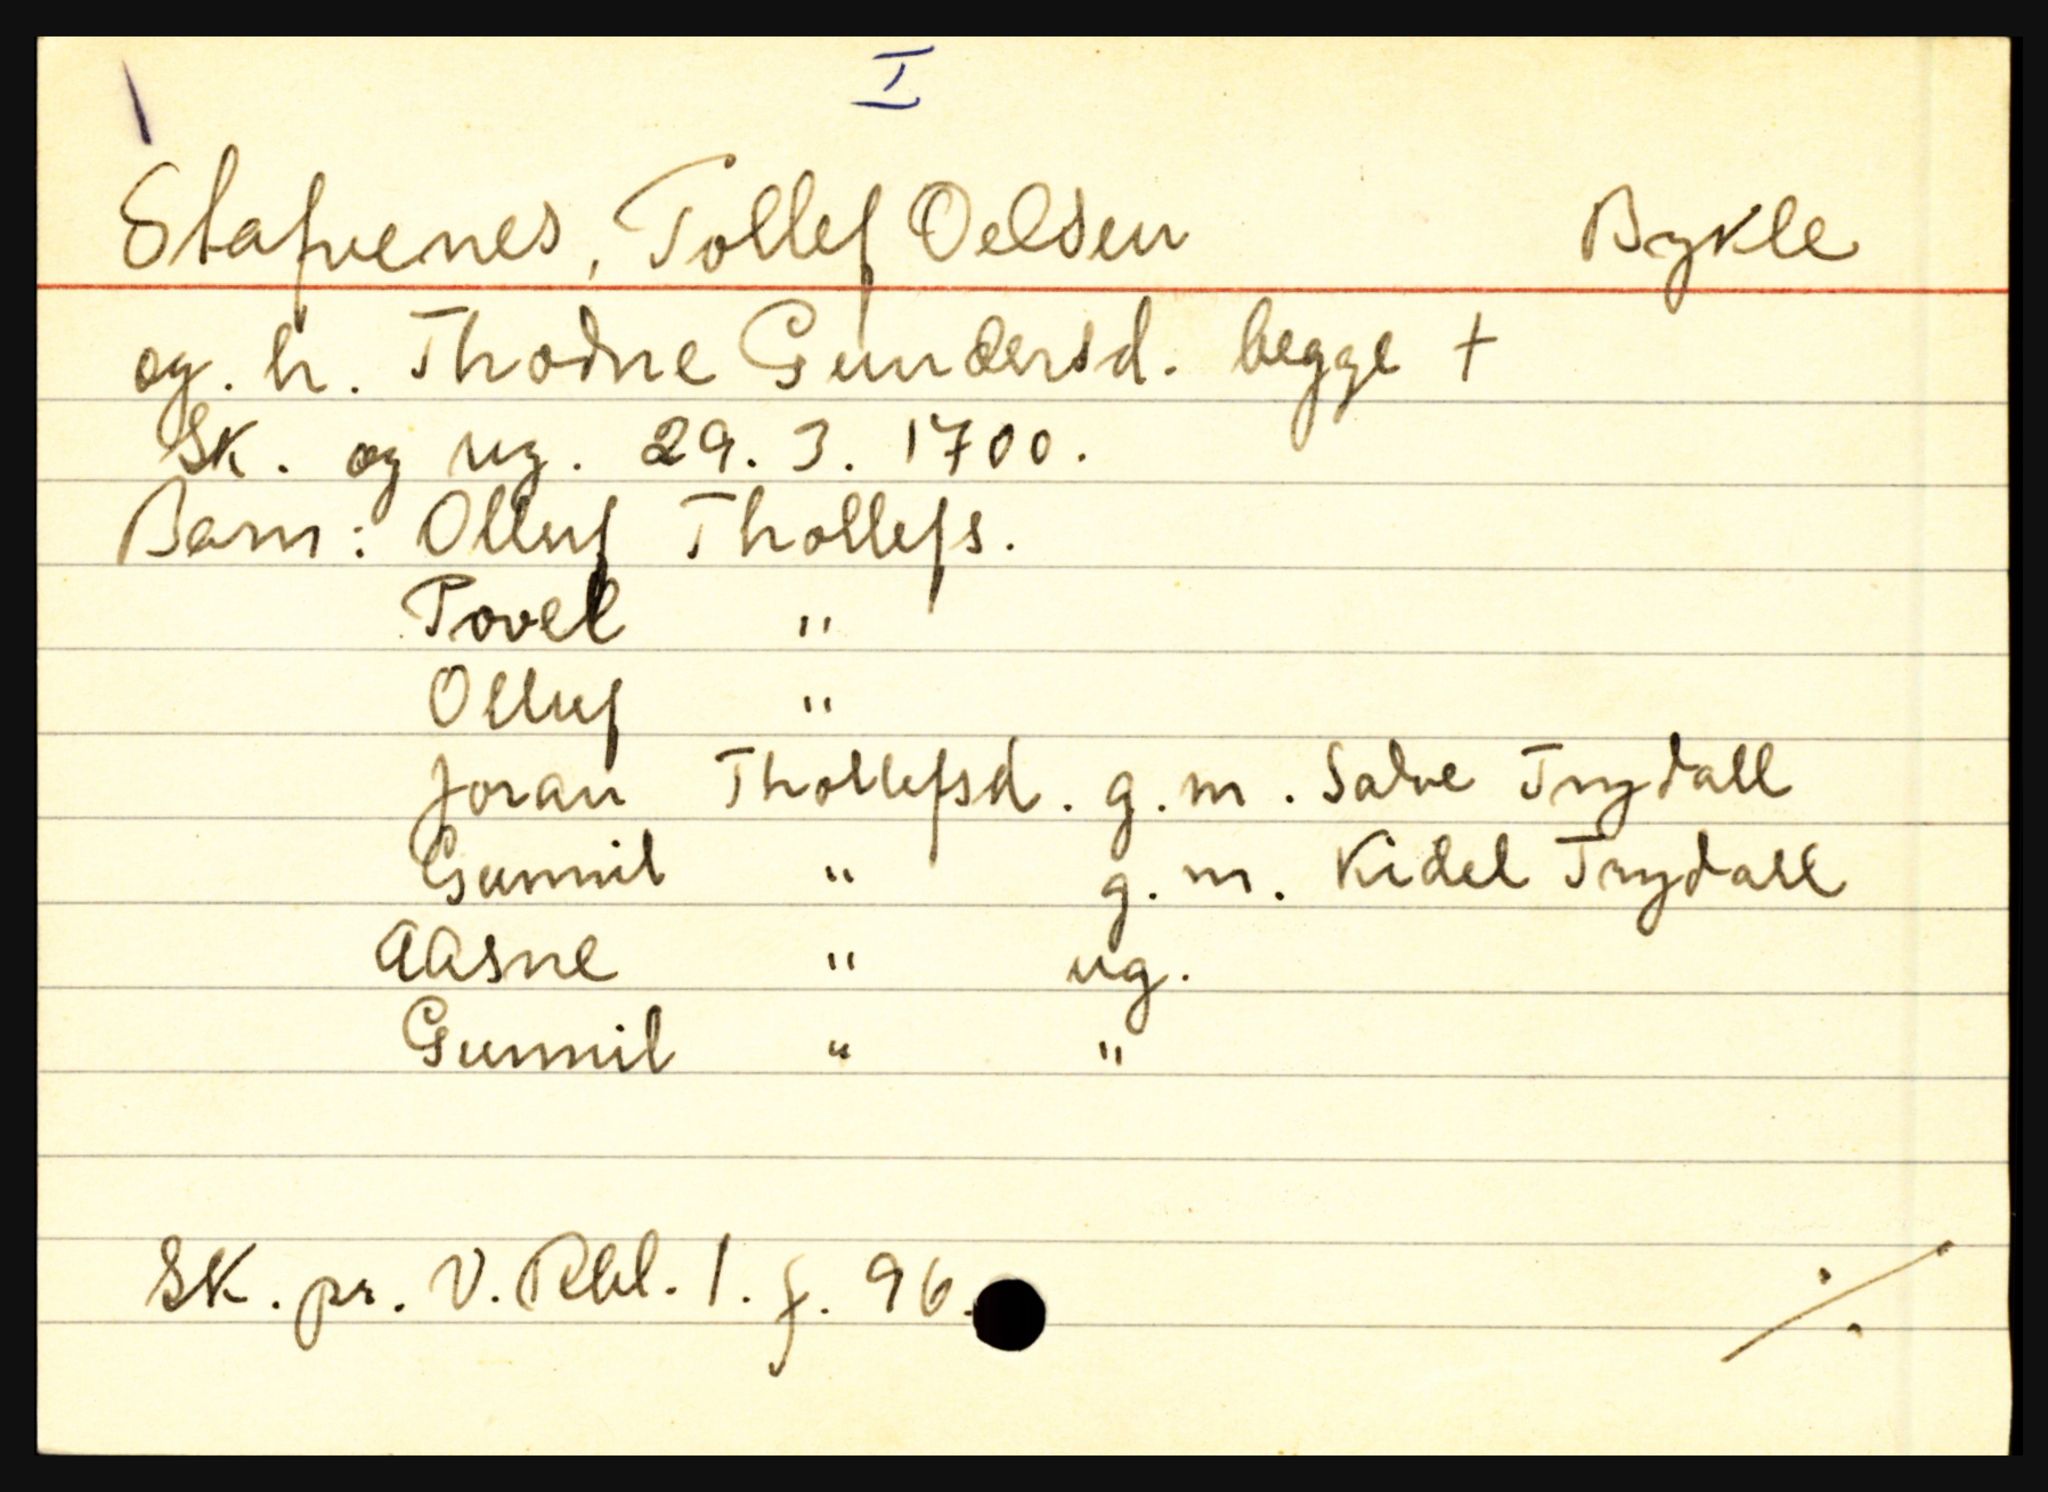 I
Stafvenes, Tollef Oelsen Bykle
og. h. Thodne Gundersd. begge +
Sk. og ug. 29. 3. 1700.
Barn: Olluf Thollefs.
Povel "
Olluf "
Joran Thollefsd. g. m. Salve Trydall
Gunnil " g. m. Kidel Trydall
Aasne " ug.
Gunnil " "
SK. pr. V. Rbl. 1. f. 96.
./.